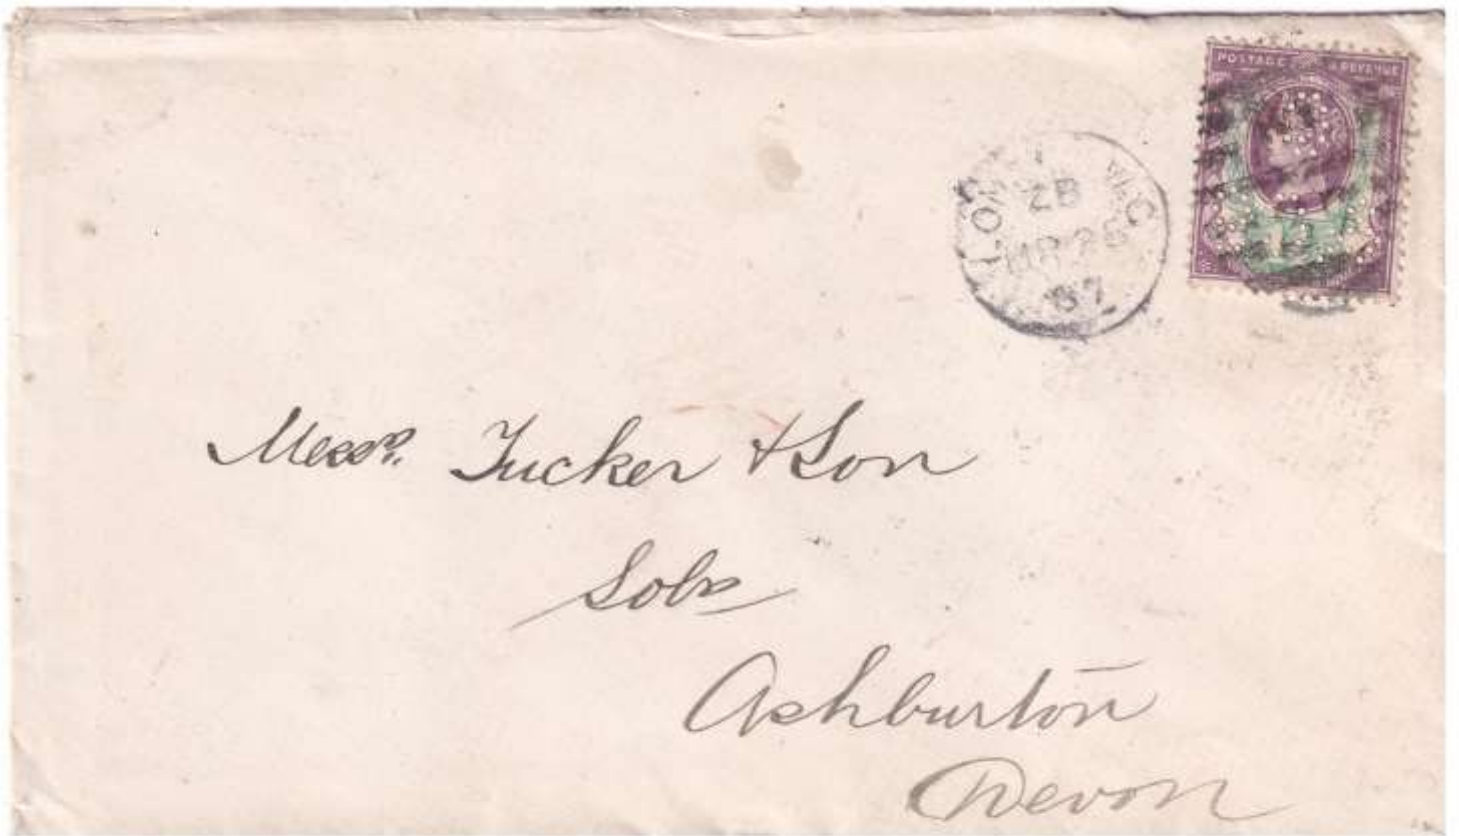 POSTAGE & REVENUE
LONDON W.C
ZB
MR 26
87
Messrs. Tucker & Son
Solrs
Ashburton
Devon